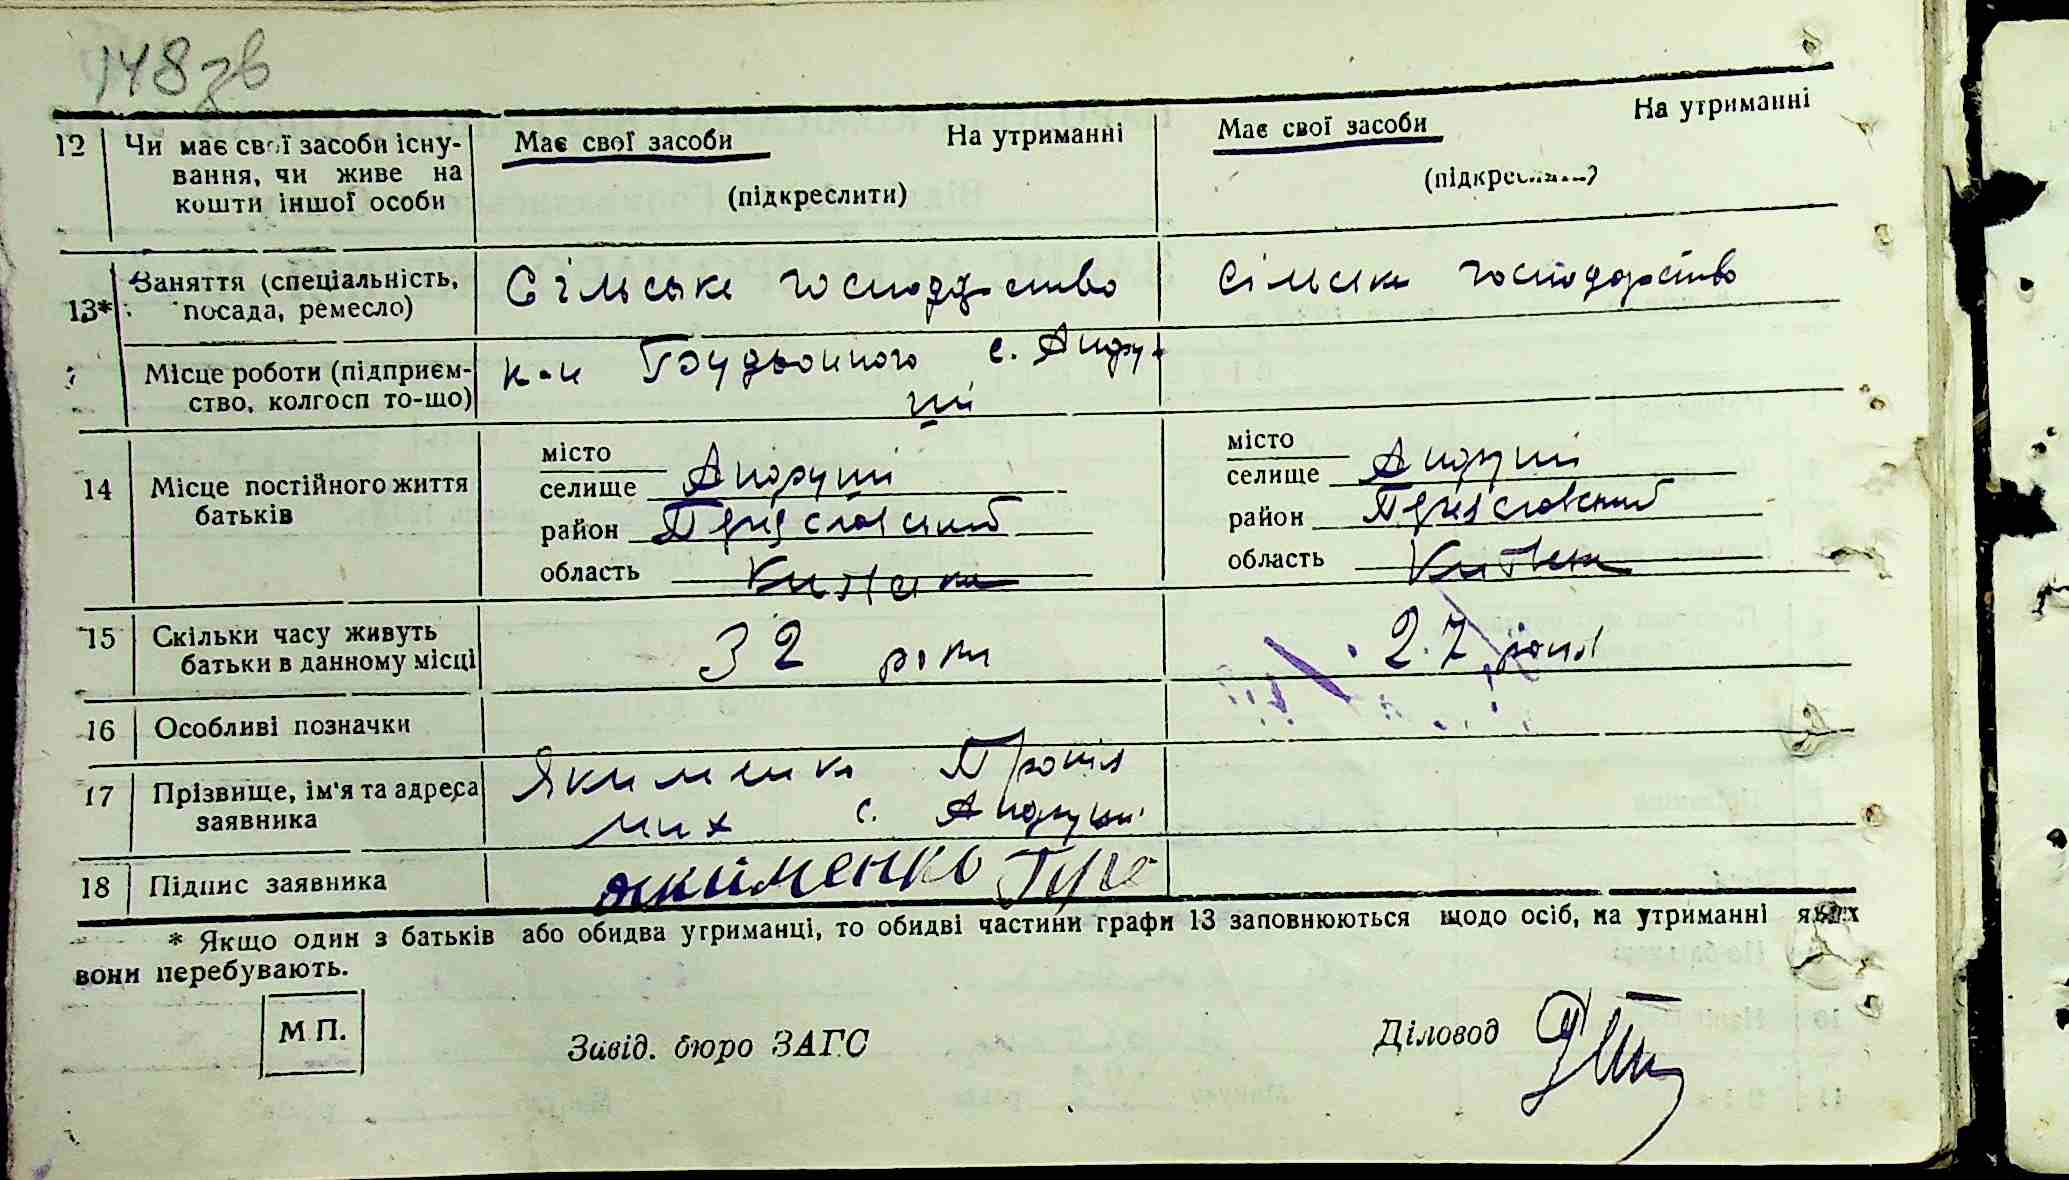 148 зв
12 Чи має свої засоби існу- Має свої засоби На утриманні Має свої засоби На утриманні
вання, чи живе на
кошти іншої особи (підкреслити) (підкреслити)
13* Заняття (спеціальність, Сільське господарство Сільське господарство
посада, ремесло)
Місце роботи (підприєм- к-п Будьонного с. Андру-
ство, колгосп то-що) ші
14 Місце постійного життя місто місто
батьків селище Андруші селище Андруші
район Переяславський район Переяславський
область Київська область Київська
15 Скільки часу живуть 32 роки 27 років
батьки в данному місці
16 Особливі позначки
17 Прізвище, ім'я та адреса Якименко
заявника с. Андруші
18 Підпис заявника Якименко
* Якщо один з батьків або обидва утриманці, то обидві частини графи 13 заповнюються щодо осіб, на утриманні яких
вони перебувають.
М.П.
Завід. бюро ЗАГС Діловод